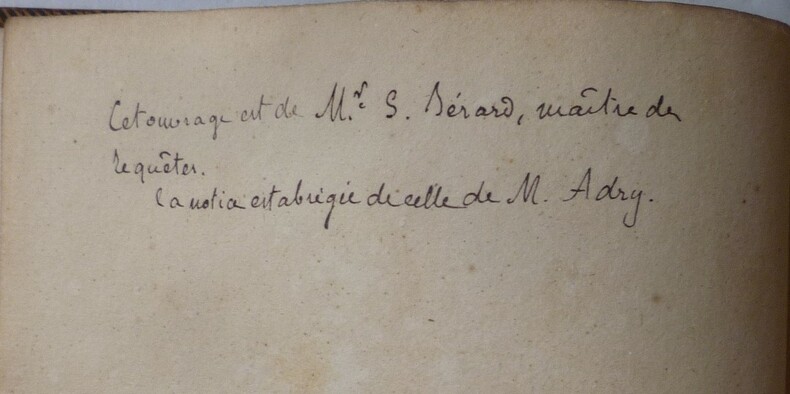 Cet ouvrage est de M.r S. Bérard, maître des
requêtes.
la notice est abrégée de celle de M. Adry.